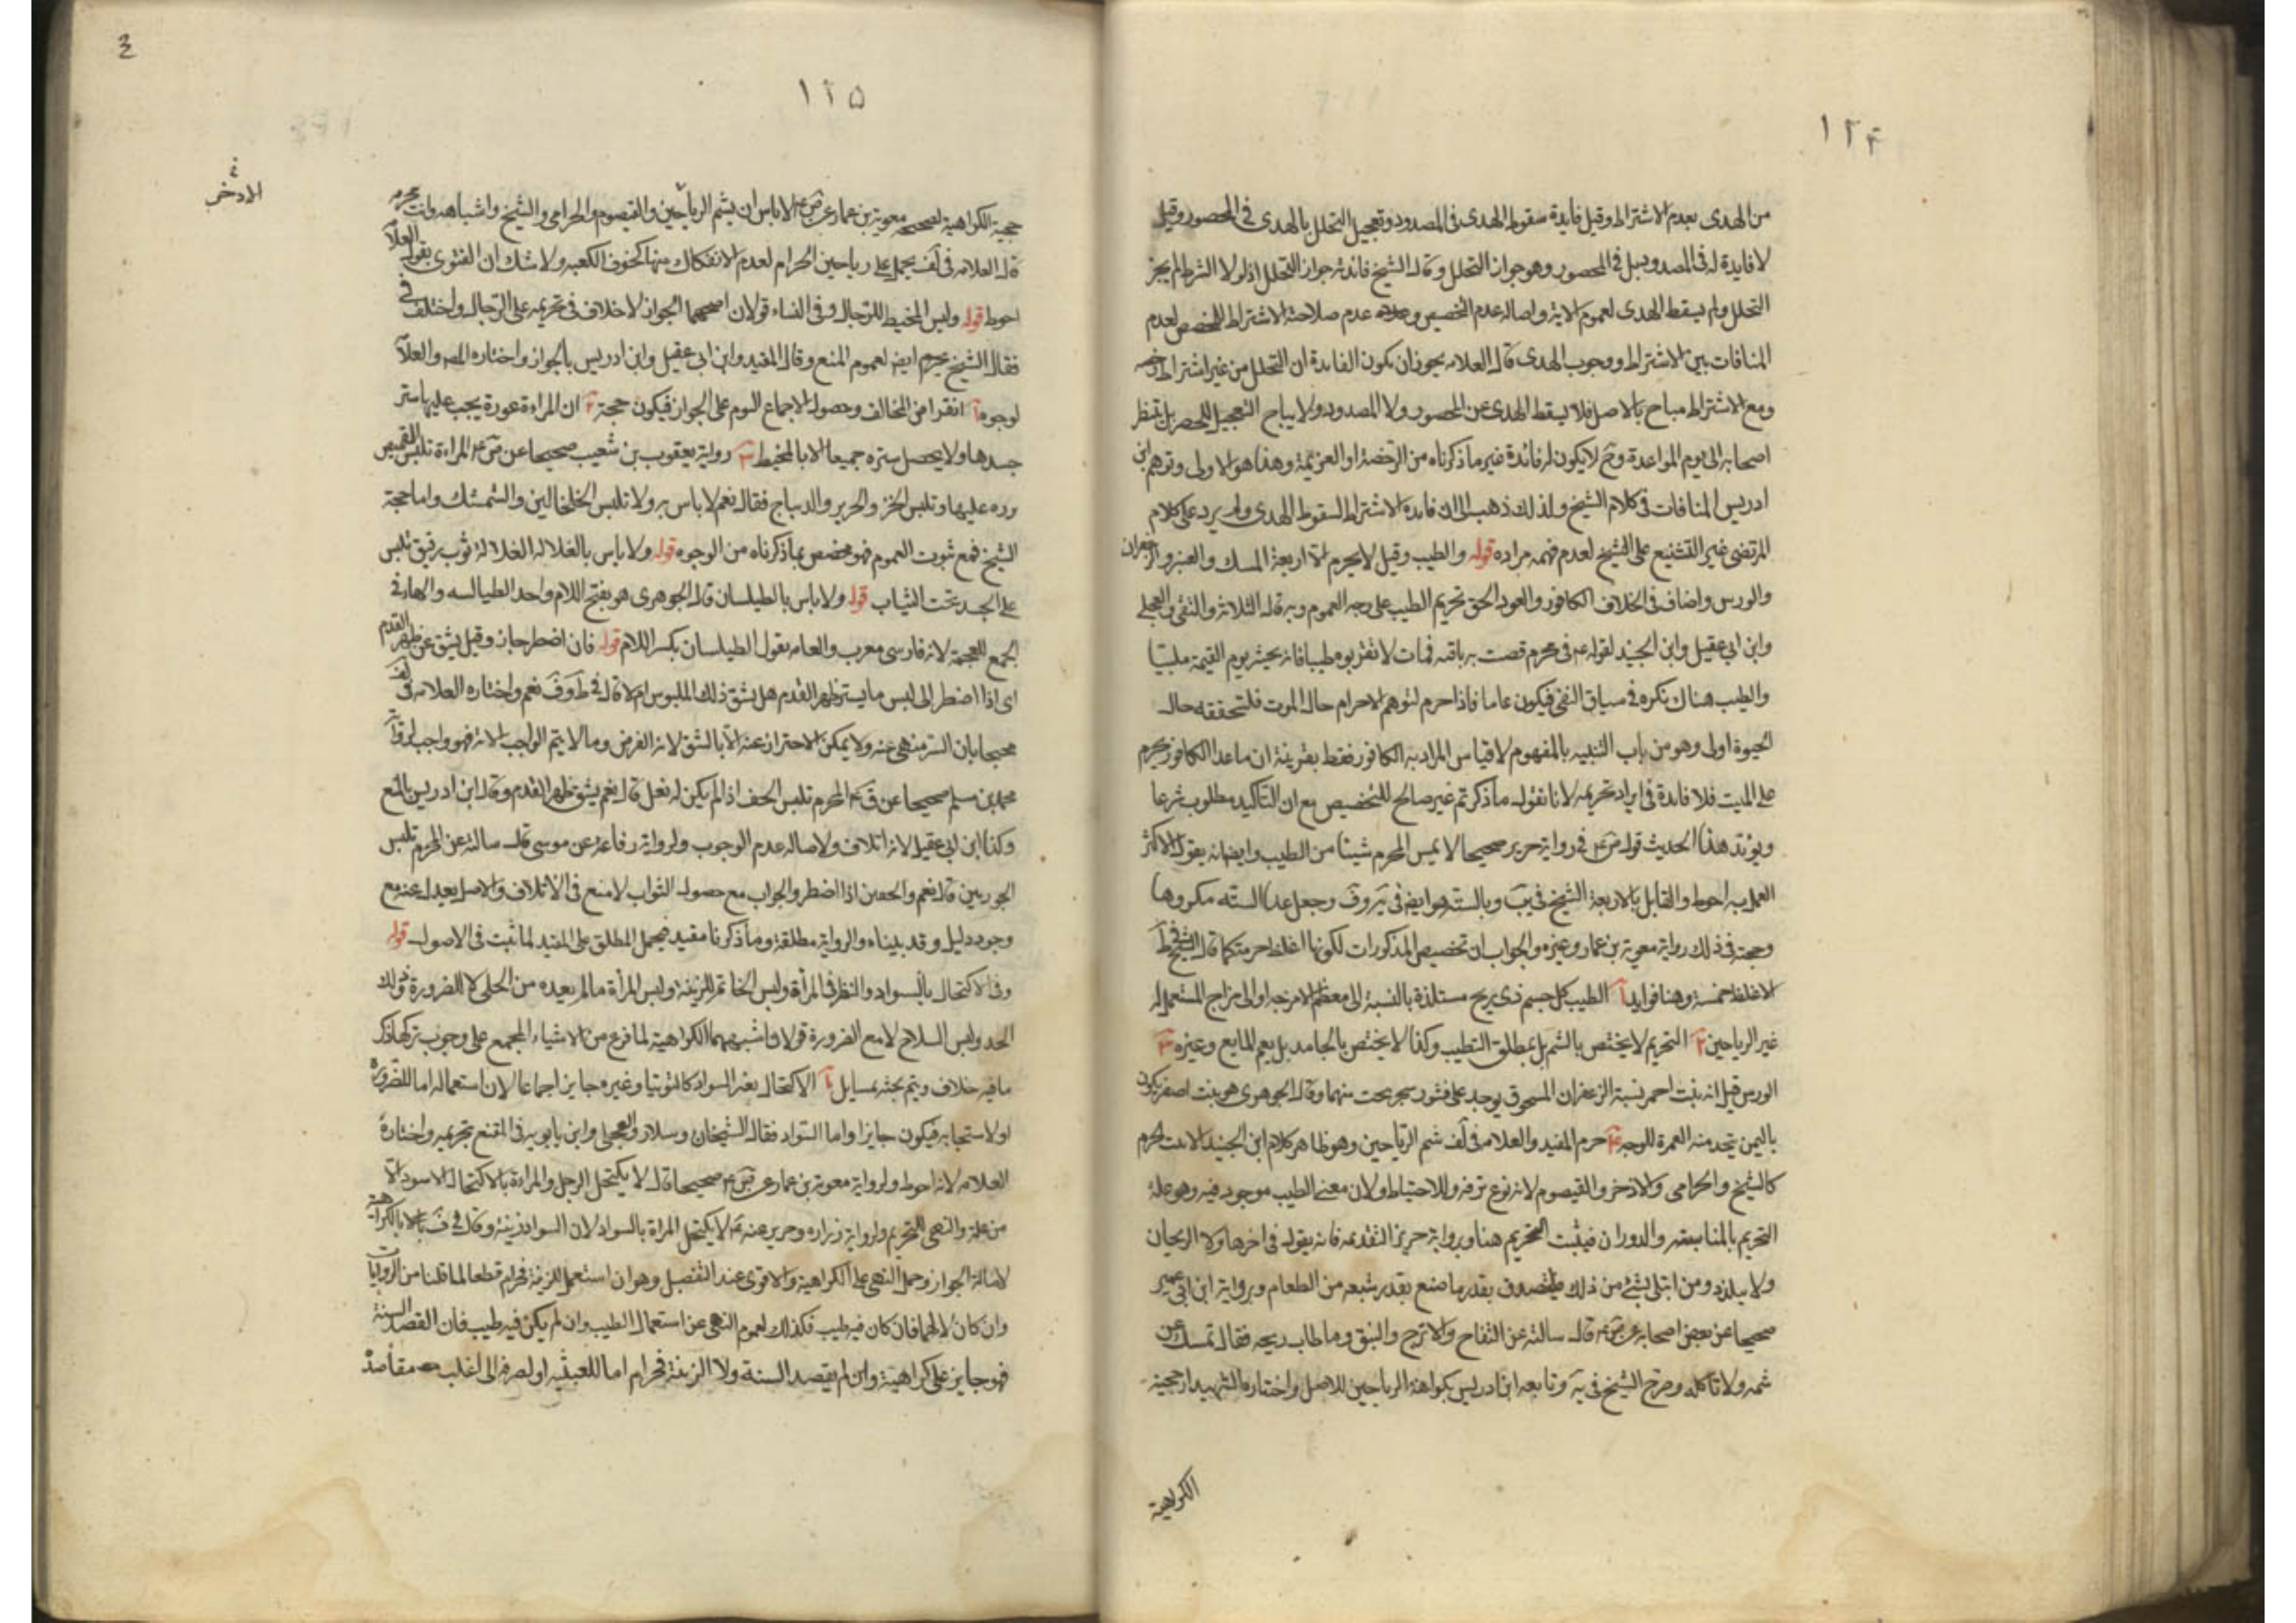 ١٢٤
من الهدى بعدم الاشتراط وقيل فايدة سقوط الهدى فى المصدود وتعجيل التحلل بالهدى فى المحصور وقيل
لا فايدة له فى المصدود بل فى المحصور وهو جواز التحلل وقال الشيخ فائدته جواز التحلل اذ لولا الشرط لم يجز
التحلل ولم يسقط الهدى لعموم الاية واصالة عدم التخصيص و عدم صلاحية الاشتراط للتخصيص لعدم
المنافات بين الاشتراط ووجوب الهدى قال العلامه يجوز ان يكون الفايدة ان التحلل من غير اشتراط رخصه
ومع الاشتراط مباح بالاصل فلا يسقط الهدى عن المحصور ولا المصدود ولا يباح التعجيل للحصر بل ينتظر
اصحابه الى يوم المواعدة وح لا يكون له فائدة غير ما ذكرناه من الرخصة او العزيمة وهذا هو الاولى وتوهم ابن
ادريس المنافات فى كلام الشيخ ولذلك ذهب الى ان فايدة الاشتراط السقوط الهدى ولم يرد على كلام
المرتضى غير التشنيع على الشيخ لعدم فهمه مراده قوله والطيب وقيل لا يحرم الا اربعة المسك والعنبر والزعفران
والورس واضاف فى الخلاف الكافور والعود الحق تحريم الطيب على وجه العموم وبه قال الثلاثة والتقى والعجلى
وابن ابى عقيل وابن الجنيد لقوله ع فى محرم قصت به ناقته فمات لا تقربوه طيبا فانه يحشر يوم القيمة ملبيا
والطيب هناك نكره فى سياق النفى فيكون عاما فاذا حرم لتوهم الاحرام حال الموت فلتحققه حال
الحيوة اولى وهو من باب التنبيه بالمفهوم لا قياس المراد به الكافور فقط بقرينة ان ما عدا الكافور يحرم
على الميت فلا فايدة فى ايراد تحريمه لانا نقول ما ذكرتم غير صالح للتخصيص مع ان التاكيد مطلوب شرعا
ويؤيد هذا الحديث قول ص ع فى رواية حريز صحيحا لا يمس المحرم شيئا من الطيب وايضا يقول الاكثر
العمل به احوط والقايل بالاربعة الشيخ فى يب وبالسته هو ايضا فى يه وف وجعل عدا السته مكروها
وحجته فى ذلك رواية معوية بن عمار وغيره والجواب ان تخصيص المذكورات لكونها اغلظ حرمة كما قال الشيخ فى ط
الاغلظ خمسة وهنا فوايد آ الطيب كل جسم ذى ريح مستلذة بالنسبة الى معظم الامزجه او الى مزاج المستعمل له
غير الرياحين ٢ التحريم لا يختص بالشم بل بمطلق التطيب وكذا لا يختص بالجامد بل يعم المايع وغيره ٣
الورس قيل انه نبت احمر نسبة الزعفران المسحوق يوجد على قشور شجر ينحت منها وقال الجوهرى هو نبت اصفر يكون
باليمن يتخذ منه الغمرة للوجه ٤ حرم المفيد والعلامه فى لف شم الرياحين وهو ظاهر كلام ابن الجنيد لحرم
كالشيح والخزامى والاذخر والقيصوم لانه نوع ترفه وللاحتياط ولان معنى الطيب موجود فيه وهو علة
التحريم بالمناسبه والدوران فيثبت التحريم هنا وبرواية حريز المتقدمه فانه يقول فى اخرها ولا الريحان
ولا يتلذذ ومن ابتلى بشئ من ذلك فليتصدق بقدر ما صنع بقدر شبعه من الطعام وبرواية ابن ابى عمير
صحيحا عن بعض اصحابه عن ص ع قال سالته عن التفاح والاترج والنبق وما طاب ريحه فقال تمسك عن
شمه ولا تاكله وصرح الشيخ فى يه وتابعه ابن ادريس بكراهة الرياحين للاصل واختاره الشهيد ارجحية
الكراهية
١٢٥
الاذخر
حجية الكراهية لصحيحة معوية بن عمار عن ص ع لا باس ان يشم الرياحين والقيصوم والخزامى والشيح واشباهه وانت محرم
قال العلامه فى لف يحمل على رياحين الحرام لعدم الانفكاك منها كخلوق الكعبه ولا شك ان الفتوى بقول العلا
احوط قوله ولبس المخيط للرجال وفى النساء قولان اصحهما الجواز لا خلاف فى تحريمه على الرجال واختلف فى
فقال الشيخ يحرم ايضا لعموم المنع وقال المفيد وابن ابى عقيل وابن ادريس بالجواز واختاره المص والعلا
لوجوه آ انقراض المخالف وحصول الاجماع اليوم على الجواز فيكون حجة ٢ ان المراءة عورة يجب عليها ستر
جسدها ولا يحصل ستره جميعا الا بالمخيط ٣ رواية يعقوب بن شعيب صحيحا عن ص ع المراءة تلبس القميص
يزره عليها وتلبس الخز والحرير والديباج فقال نعم لا باس به ولا تلبس الخلخالين والشمشك واما حجة
الشيخ فمع ثبوت العموم فهو مخصص بما ذكرناه من الوجوه قوله ولا باس بالغلاله الغلالة ثوب رقيق تلبس
على الجسد تحت الثياب قوله ولا باس بالطيلسان قال الجوهرى هو بفتح اللام واحد الطيالسه والهاء فى
الجمع للعجمة لانه فارسى معرب والعامه يقول الطيلسان بكسر اللام قوله فان اضطر جاز وقيل يشق عن ظهر القدم
اى اذا اضطر الى لبس ما يستر ظهر القدم هل يشق ذلك الملبوس ام لا قال فى ط وف نعم واختاره العلامه فى لف
محتجا بان الستر منهى عنه ولا يمكن الاحتراز عنه الا بالشق لانه الفرض وما لا يتم الواجب الا به فهو واجب لرواية
محمد بن مسلم صحيحا عن ق ع المحرم تلبس الخف اذا لم يكن له نعل قال نعم يشق ظهر القدم وقال ابن ادريس بالمنع
وكذا ابن ابى عقيل لانه اتلاف ولاصالة عدم الوجوب ولرواية رفاعة عن موسى قال سالته عن المحرم تلبس
الجوربين قال نعم والخفين اذا اضطر والجواب مع حصول الثواب لا منع فى الاتلاف والاصل يعدل عنه مع
وجود دليل وقد بيناه والرواية مطلقة وما ذكرنا مقيد فيحمل المطلق على المقيد لما ثبت فى الاصول قوله
وفى الاكتحال بالسواد والنظر فى المرآة ولبس الخاتم للزينة ولبس المرأة مالم يعيده من الحلى الا لضرورة
الحد ولبس السلاح لا مع الضرورة قولان اشبههما الكراهية لما فرغ من الاشياء المجمع على وجوب تركها ذكر
ما فيه خلاف ويتم بحثه بمسايل آ الاكتحال بغير السواد كالتوتيا وغيره جايز اجماعا لان استعماله اما للضرورة
او لاستحبابه فيكون جايزا واما السواد فقال الشيخان وسلار والعجلى وابن بابويه فى المقنع بتحريمه واختاره
العلامه لانه احوط ولرواية معوية بن عمار عن ص ع صحيحا قال لا يكتحل الرجل والمراءة بالاكتحال الاسود الا
من علة والنهى للتحريم ولرواية زراره وحريز عنه ع لا يكتحل المراة بالسواد لان السواد زينة وقال فى ف بالكراهية
لاصالة الجواز وحمل النهى على الكراهية والاقوى عندى التفصيل وهو ان استعمل للزينة فحرام قطعا لما قلنا من الروايات
وان كان لا لهما فان كان فيه طيب فكذلك لعموم النهى عن استعمال الطيب وان لم يكن فيه طيب فان القصد السنة
فهو جايز على كراهية وان لم يقصد السنة ولا الزينة فحرام اما للعبثيه او لصرفه الى اغلب مقاصد